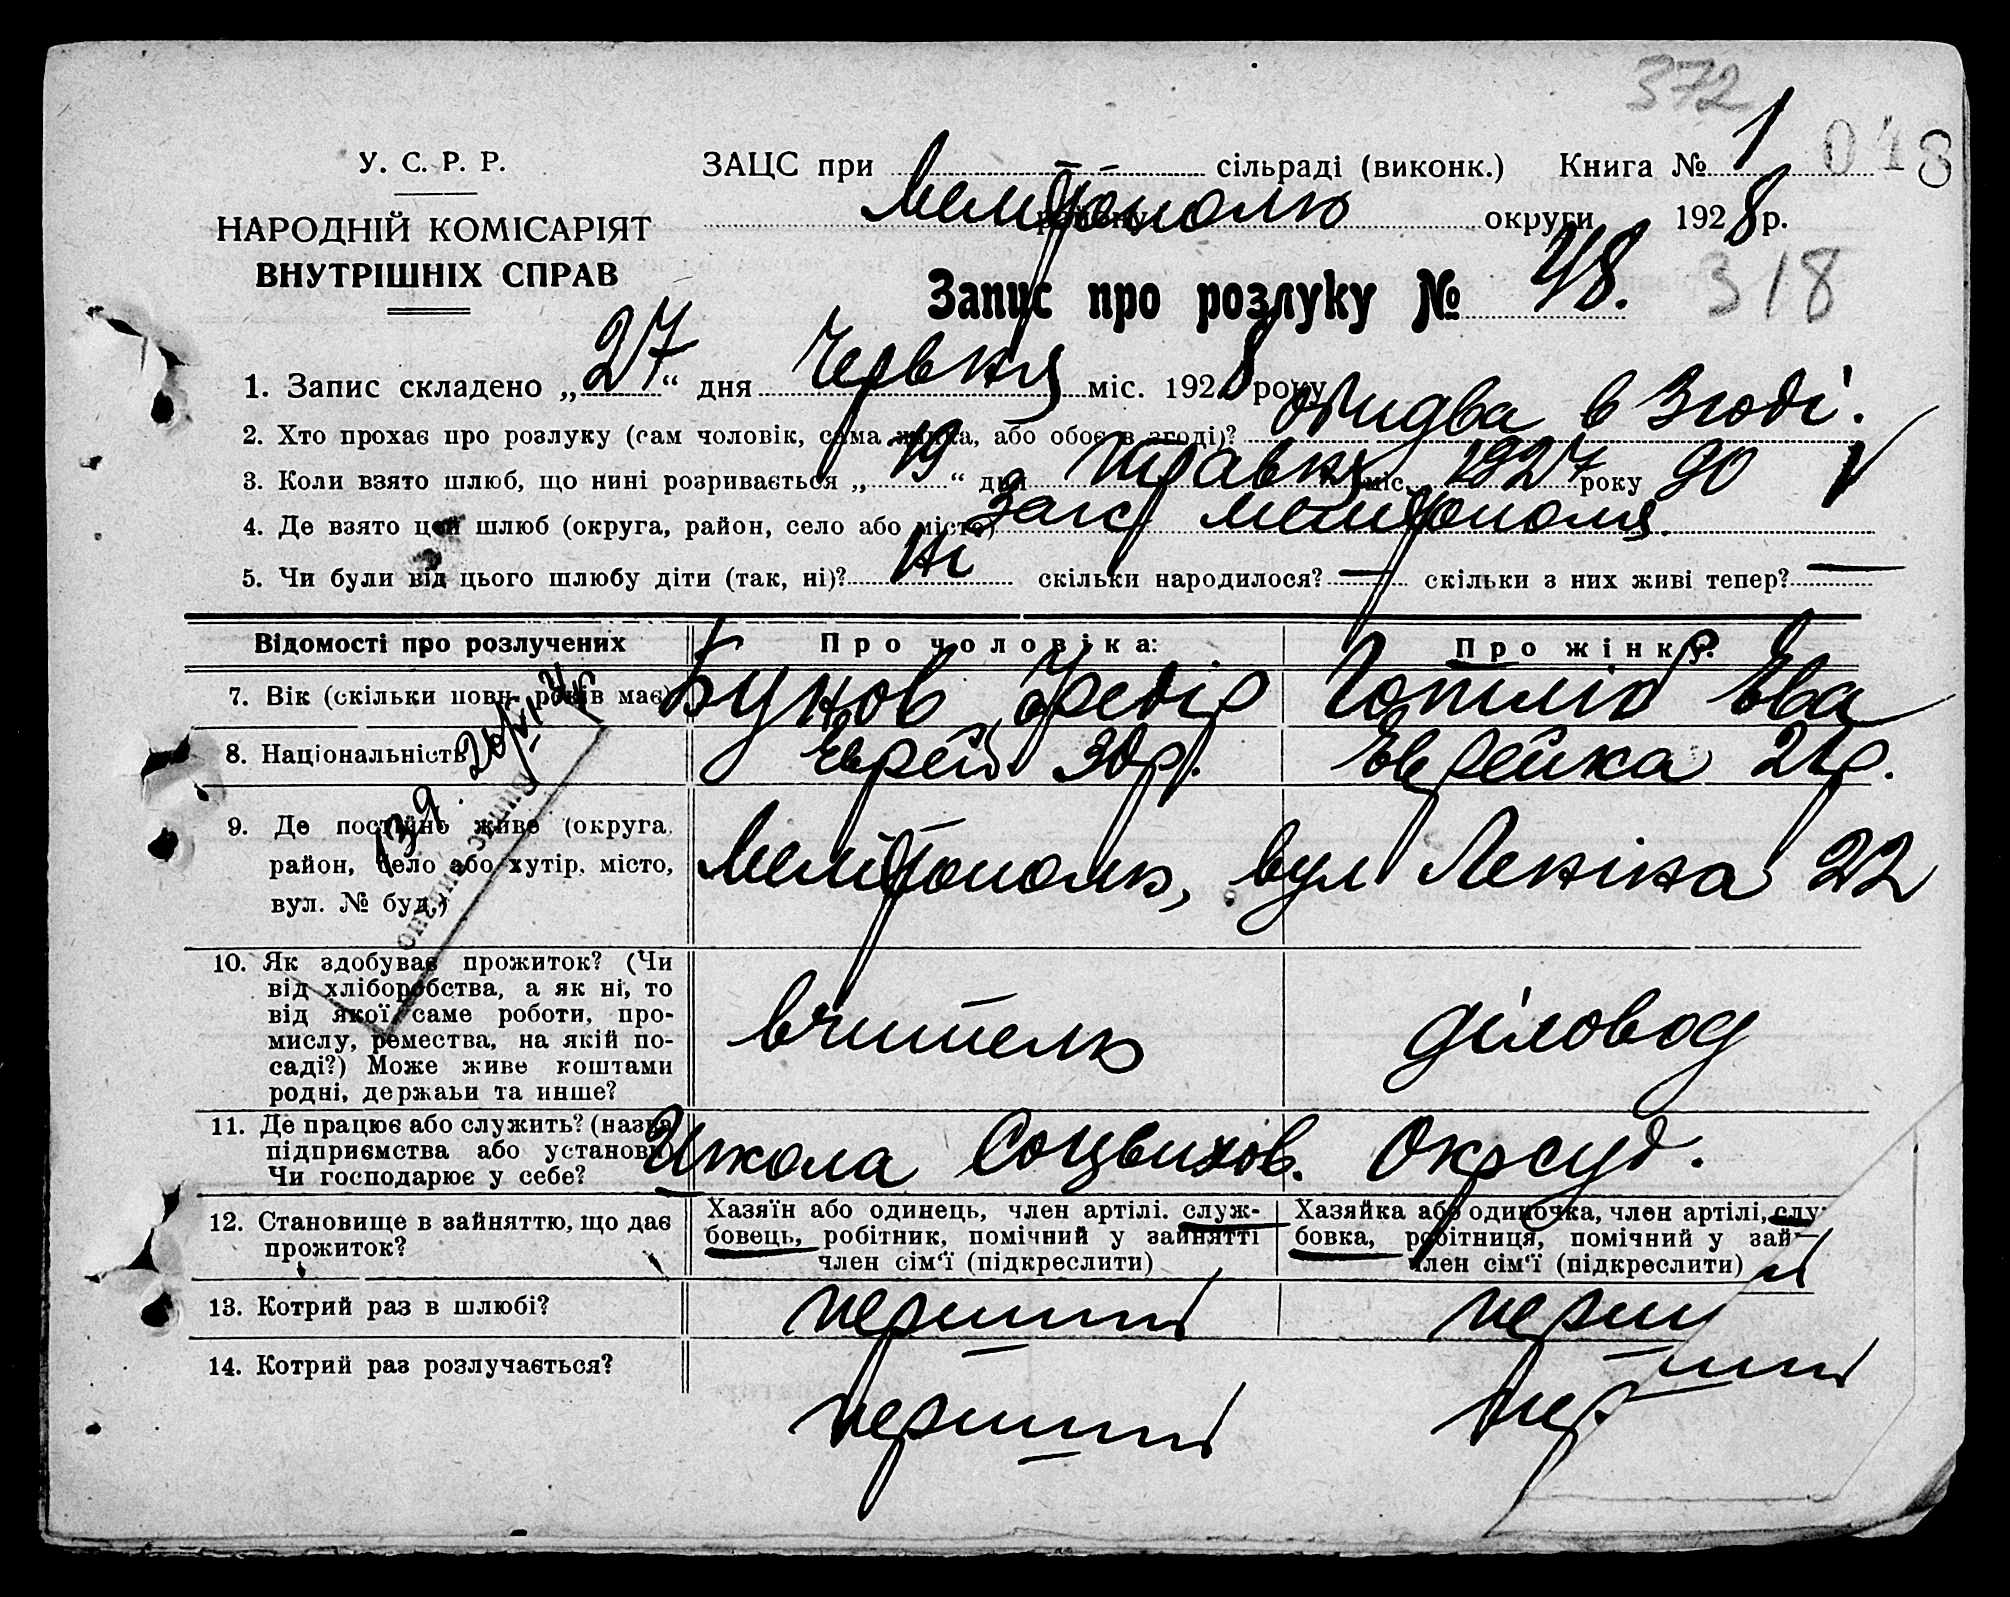 372
У. С. Р. Р.
НАРОДНІЙ КОМІСАРІЯТ
ВНУТРІШНІХ СПРАВ
ЗАЦС при сільраді (виконк.) Книга № 1 018
Мелітополю району округи 1928 р.
Запис про розлуку № 48.
318
1. Запис складено „27“ дня Червня міс. 1928 року
2. Хто прохає про розлуку (сам чоловік, сама жінка, або обоє в згоді)? обидва в згоді.
3. Коли взято шлюб, що нині розривається „19“ дня травня міс. 1927 року 90
4. Де взято цей шлюб (округа, район, село або місто) Загс Мелітополя.
5. Чи були від цього шлюбу діти (так, ні)? ні скільки народилося? — скільки з них живі тепер? —
Відомості про розлучених
Про чоловіка:
Про жінку:
7. Вік (скільки повн. років має)
Бунов Федір
Готліб Ева
8. Національність
Єврей 30 р.
Єврейка 21 р.
9. Де постійно живе (округа, район, село або хутір, місто, вул. № буд.)
Мелітополь, вул Леніна 22
139
Выпис видано
10. Як здобуває прожиток? (Чи
від хліборобства, а як ні, то
від якої саме роботи, про-
мислу, ремества, на якій по-
саді?) Може живе коштами
родні, держави та инше?
вчитель
діловод
11. Де працює або служить? (назва
підприємства або установи)
Чи господарює у себе?
Школа Соцвихов.
Окрсуд.
12. Становище в зайняттю, що дає
прожиток?
Хазяїн або одинець, член артілі, служ-
бовець, робітник, помічний у зайнятті
член сім'ї (підкреслити)
Хазяйка або одиночка, член артілі, слу
бовка, робітниця, помічний у зай
член сім'ї (підкреслити)
13. Котрий раз в шлюбі?
перший
перш
14. Котрий раз розлучається?
перший